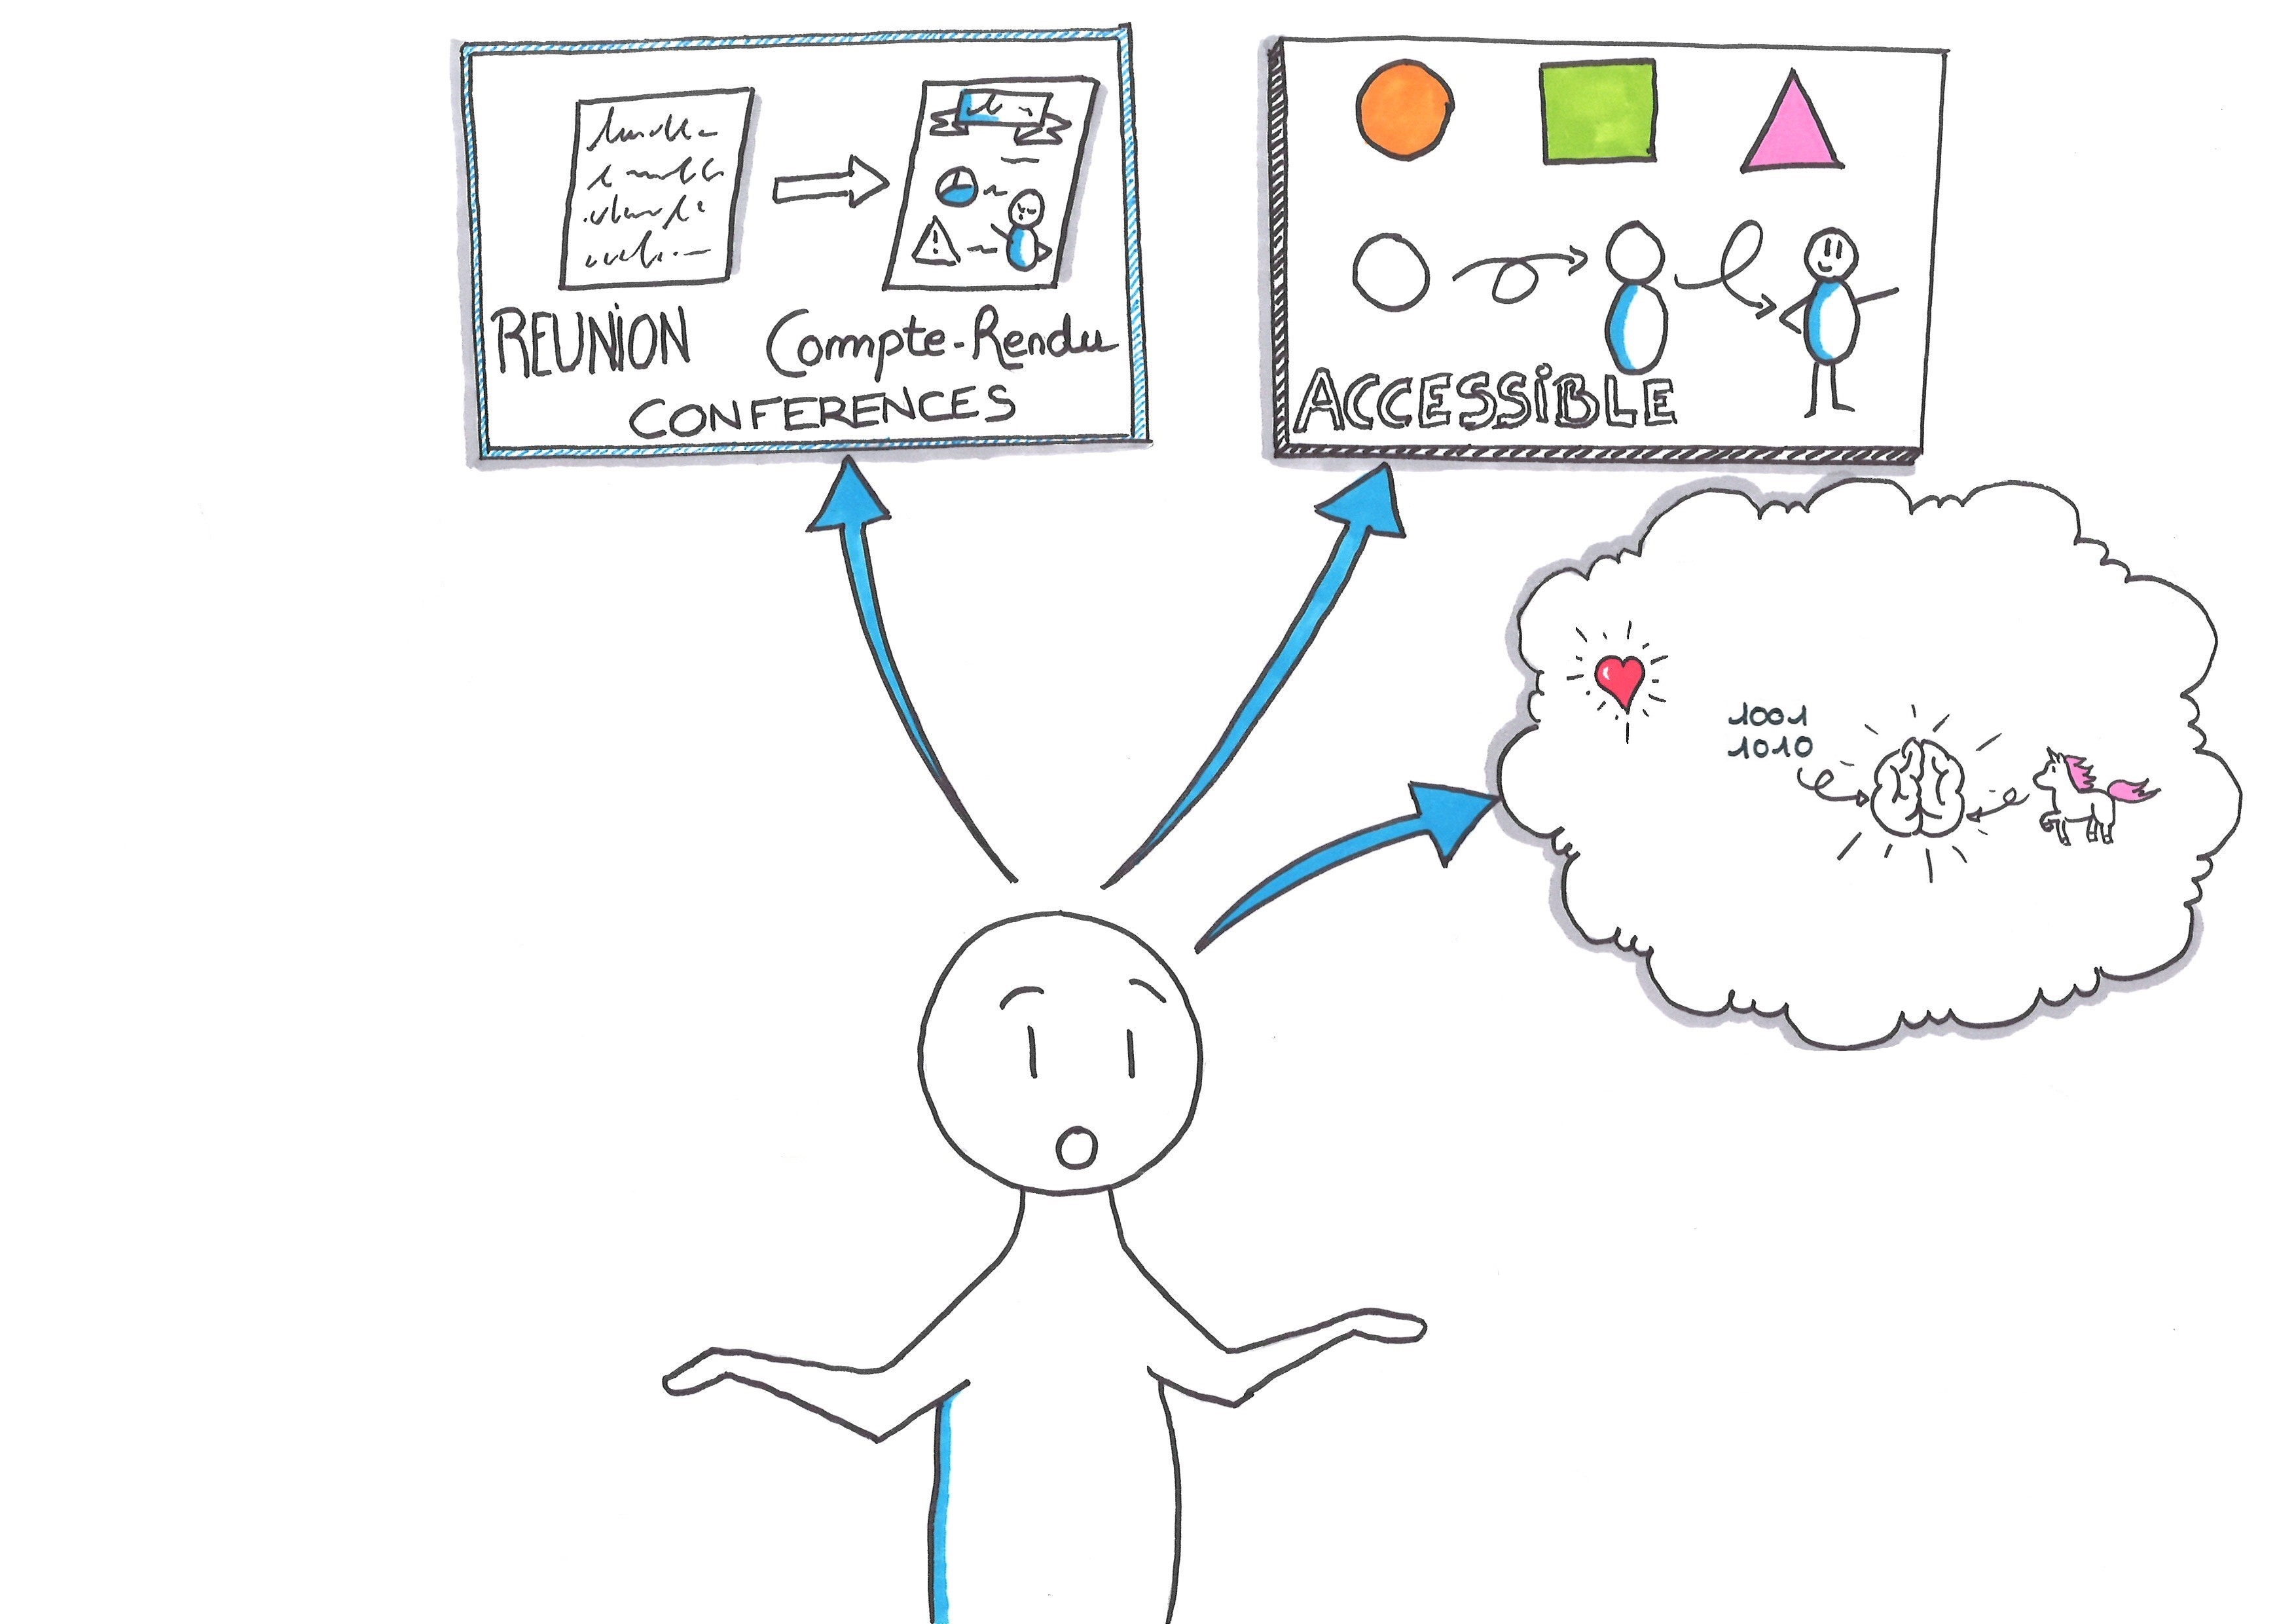 REUNION
Compte-Rendu
CONFERENCES
ACCESSIBLE
1001
1010